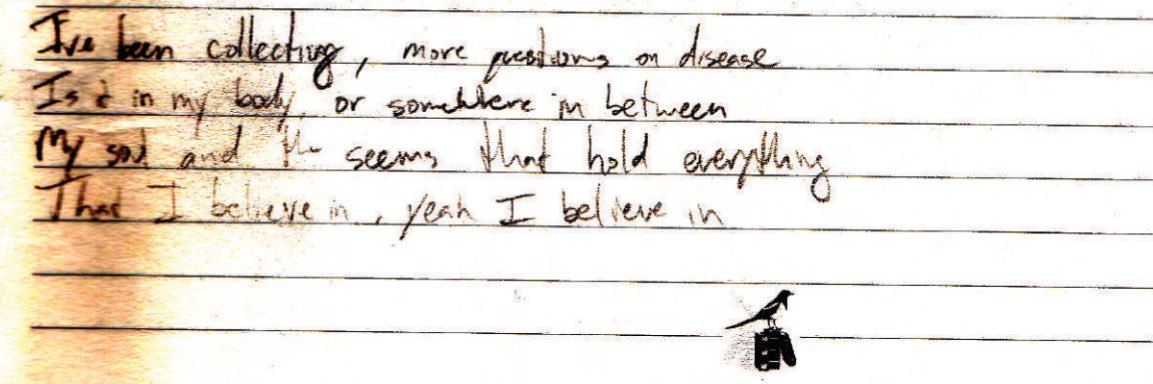 I've been collecting, more questions on disease
Is it in my body, or somewhere in between
My soul and the seems that hold everything
That I believe in, yeah I believe in